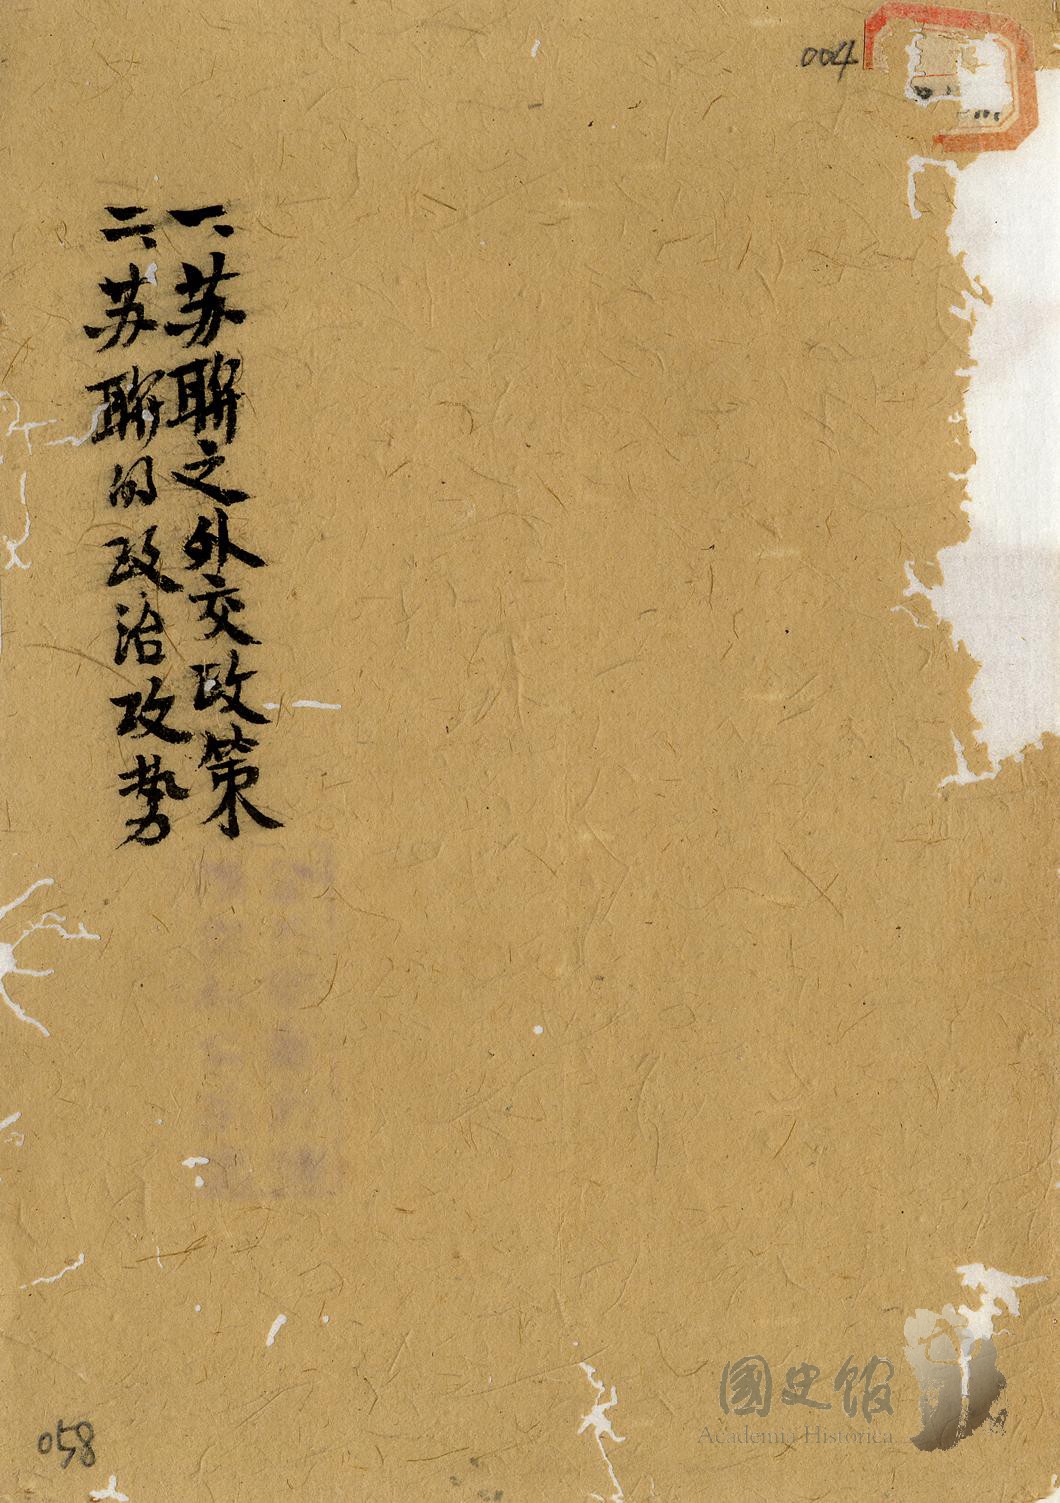 004
一、苏聯之外交政策
二、苏聯的政治攻势
058
國史館
Academia Historica